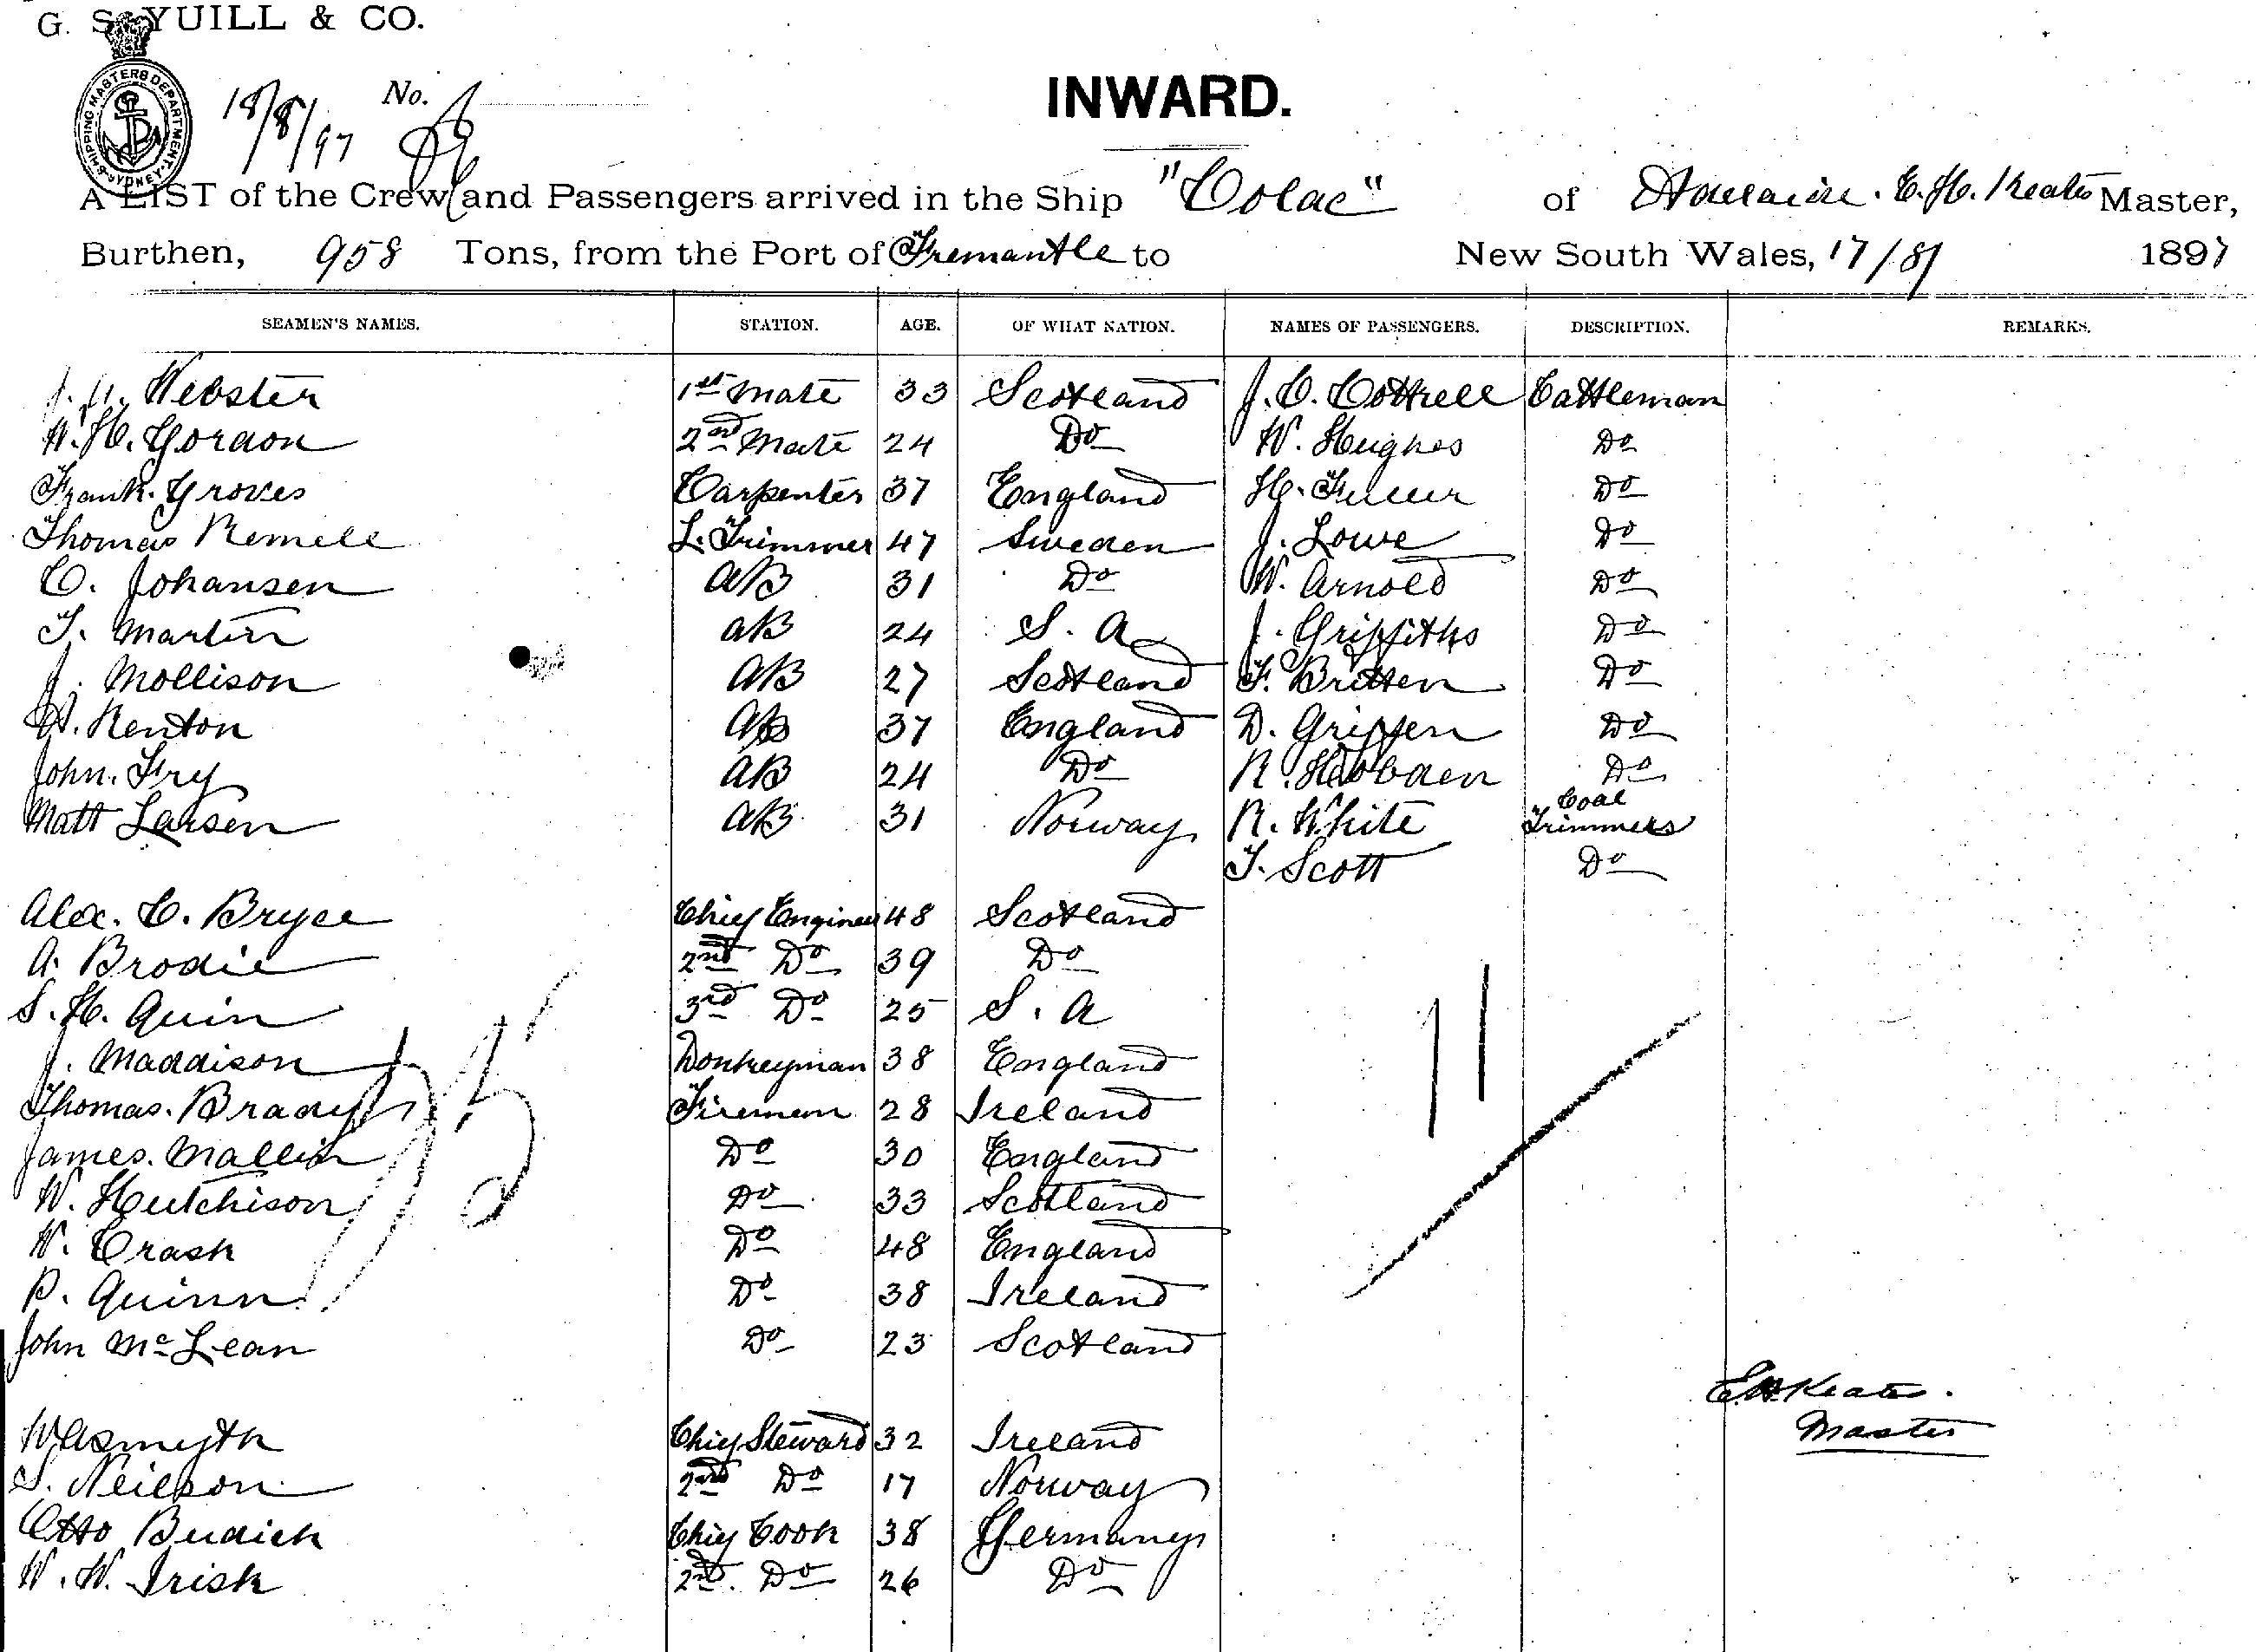 G. S. YUILL & CO.
SHIPPING MASTERS DEPARTMENT SYDNEY
18/8/97 No.
INWARD.
A LIST of the Crew and Passengers arrived in the Ship "Colac" of Adelaide. E. H. Keats Master,
Burthen, 958 Tons, from the Port of Fremantle to New South Wales, 17/8/ 1897
SEAMEN'S NAMES. STATION. AGE. OF WHAT NATION. NAMES OF PASSENGERS. DESCRIPTION. REMARKS.
Webster 1st Mate 33 Scotland J. C. Cottrell Cattleman
H. Gordon 2nd Mate 24 Do W. Hughes Do
Frank. Groves Carpenter 37 England H. Fuller Do
Thomas L. Trimmer 47 Sweden J. Lowe Do
C. Johansen AB 31 Do W. Arnold Do
T. Martin AB 24 S. A J. Griffiths Do
J. Mollison AB 27 Scotland F. Britten Do
Renton AB 37 England D. Griffen Do
John. Fry AB 24 Do R. Hobden Do
Matt Larsen AB 31 Norway R. White Coal Trimmers
T. Scott Do
Alex. C. Bryce Chief Engineer 48 Scotland
A. Brodie 2nd Do 39 Do
S. H. Quin 3rd Do 25 S. A
J. Maddison Donkeyman 38 England
Thomas. Brady Fireman 28 Ireland
James. Mallin Do 30 England
W. Hutchison Do 33 Scotland
W. Crash Do 48 England
P. Quinn Do 38 Ireland
John McLean Do 23 Scotland
E H Keats.
Master
W A Smyth Chief Steward 32 Ireland
S. Neilson 2nd Do 17 Norway
Otto Budich Chief Cook 38 Germany
W. W. Irish 2nd. Do 26 Do
25
11